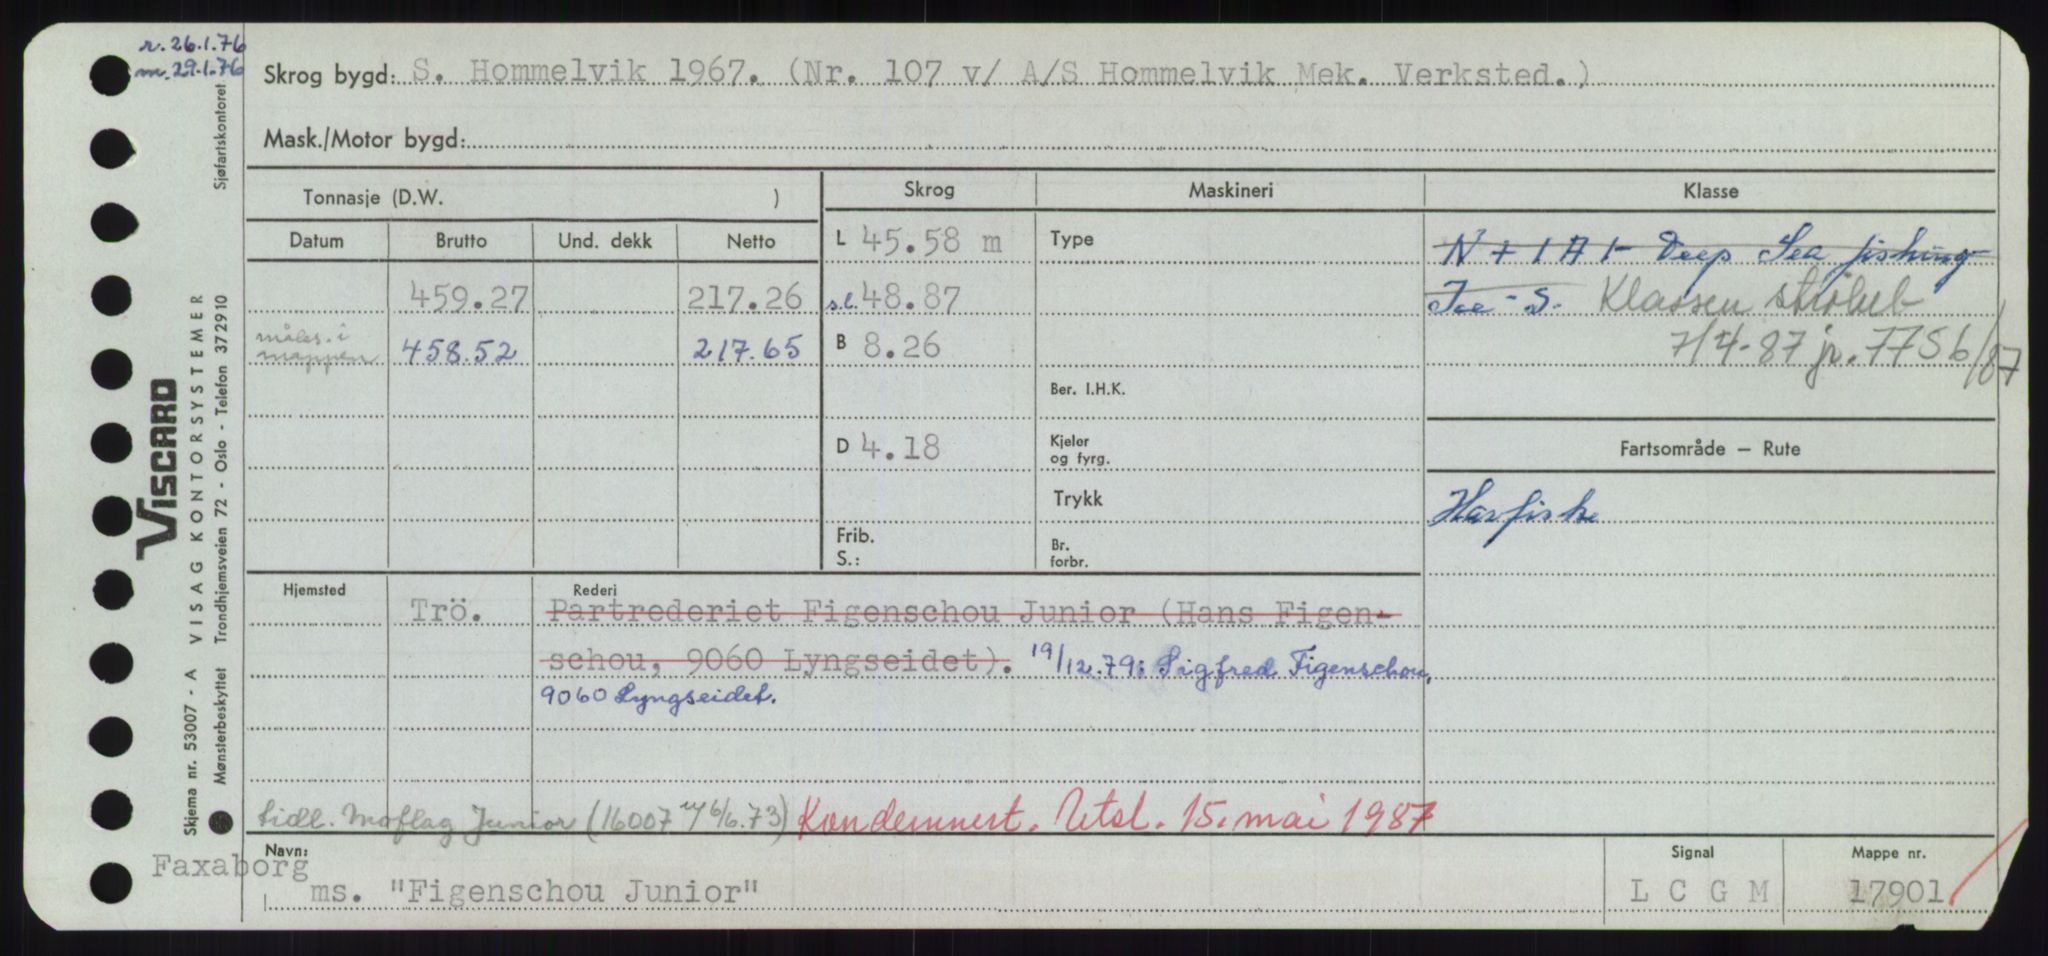 r. 26.1.76
m. 29.1.76
Skrog bygd: S. Hommelvik 1967. (Nr. 107 v/ A/S Hommelvik Mek. Verksted.)
Mask./Motor bygd:
Tonnasje (D.W. )
Skrog
Maskineri
Klasse
Datum Brutto Und. dekk Netto
L 45.58 m
Type
N + 1 A 1 - Deep Sea fishing
459.27 217.26
s.l. 48.87
Ice - S. Klassen strøket
måles. i
mappen 458.52 217.65
B 8.26
7/4-87 jr. 7756/87
Ber. I.H.K.
D 4.18
Kjeler
og fyrg.
Fartsområde — Rute
Trykk
Havfiske
Frib.
S.:
Br.
forbr.
Hjemsted
Rederi
Trö. Partrederiet Figenschou Junior (Hans Figen-
schou, 9060 Lyngseidet). 19/12.79: Sigfred Figenschou,
9060 Lyngseidet.
tidl. Moflag Junior (16007 6/6.73) Kondemnert. Utsl. 15. mai 1987
Navn:
Faxaborg
ms. "Figenschou Junior"
Signal
L C G M
Mappe nr.
17901
Sjøfartskontoret
VISCARD
VISAG KONTORSYSTEMER
Trondhjemsveien 72 - Oslo - Telefon 37 29 10
Skjema nr. 53007 - A
Mønsterbeskyttet